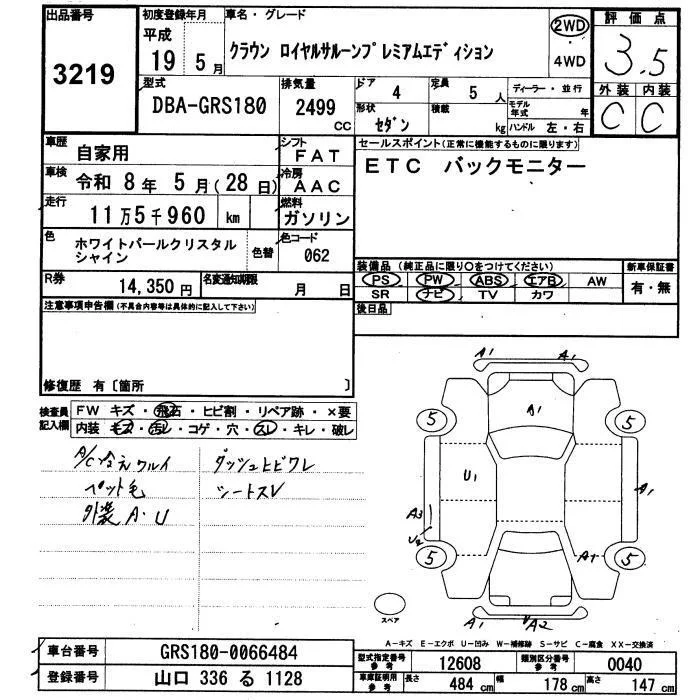 出品番号
3219
初度登録年月
平成
19年 5月
車名・グレード
クラウン ロイヤルサルーンプレミアムエディション
2WD
・
4WD
評価点
3.5
外装 内装
C C
型式
DBA-GRS180
排気量
2499
CC
ドア 4
定員 5人
形状 セダン
積載 kg
ディーラー・並行
モデル年式 年
ハンドル 左・右
車歴
自家用
シフト
FAT
車検
令和 8年 5月(28日)
冷房
AAC
走行
11万5千960 km
燃料
ガソリン
色
ホワイトパールクリスタル
シャイン
色替
色コード
062
R券
14,350円
名変通知期限
月 日
セールスポイント(正常に機能するものに限ります)
ETC バックモニター
装備品(純正品に限り○をつけてください)
PS PW ABS エアB AW
SR ナビ TV カワ
新車保証書
有・無
後日品
注意事項申告欄(不具合内容等は具体的に記入して下さい)
修復歴 有〔箇所 〕
検査員
記入欄
FW キズ・飛石・ヒビ割・リペア跡・×要
内装 キズ・汚レ・コゲ・穴・スレ・キレ・破レ
A/C冷えワルイ
ペット毛
外装 A・U
ダッシュヒビワレ
シートスレ
A1 A1
5 A1 5
U1
A1
A3
U2
5 A1 5
スペア
A1 U A2
A-キズ E-エクボ U-凹み W-補修跡 S-サビ C-腐食 XX-交換済
車台番号
GRS180-0066484
登録番号
山口 336 る 1128
型式指定番号
参考
12608
類別区分番号
参考
0040
車庫証明用
参考
長さ 484cm
幅 178cm
高さ 147cm